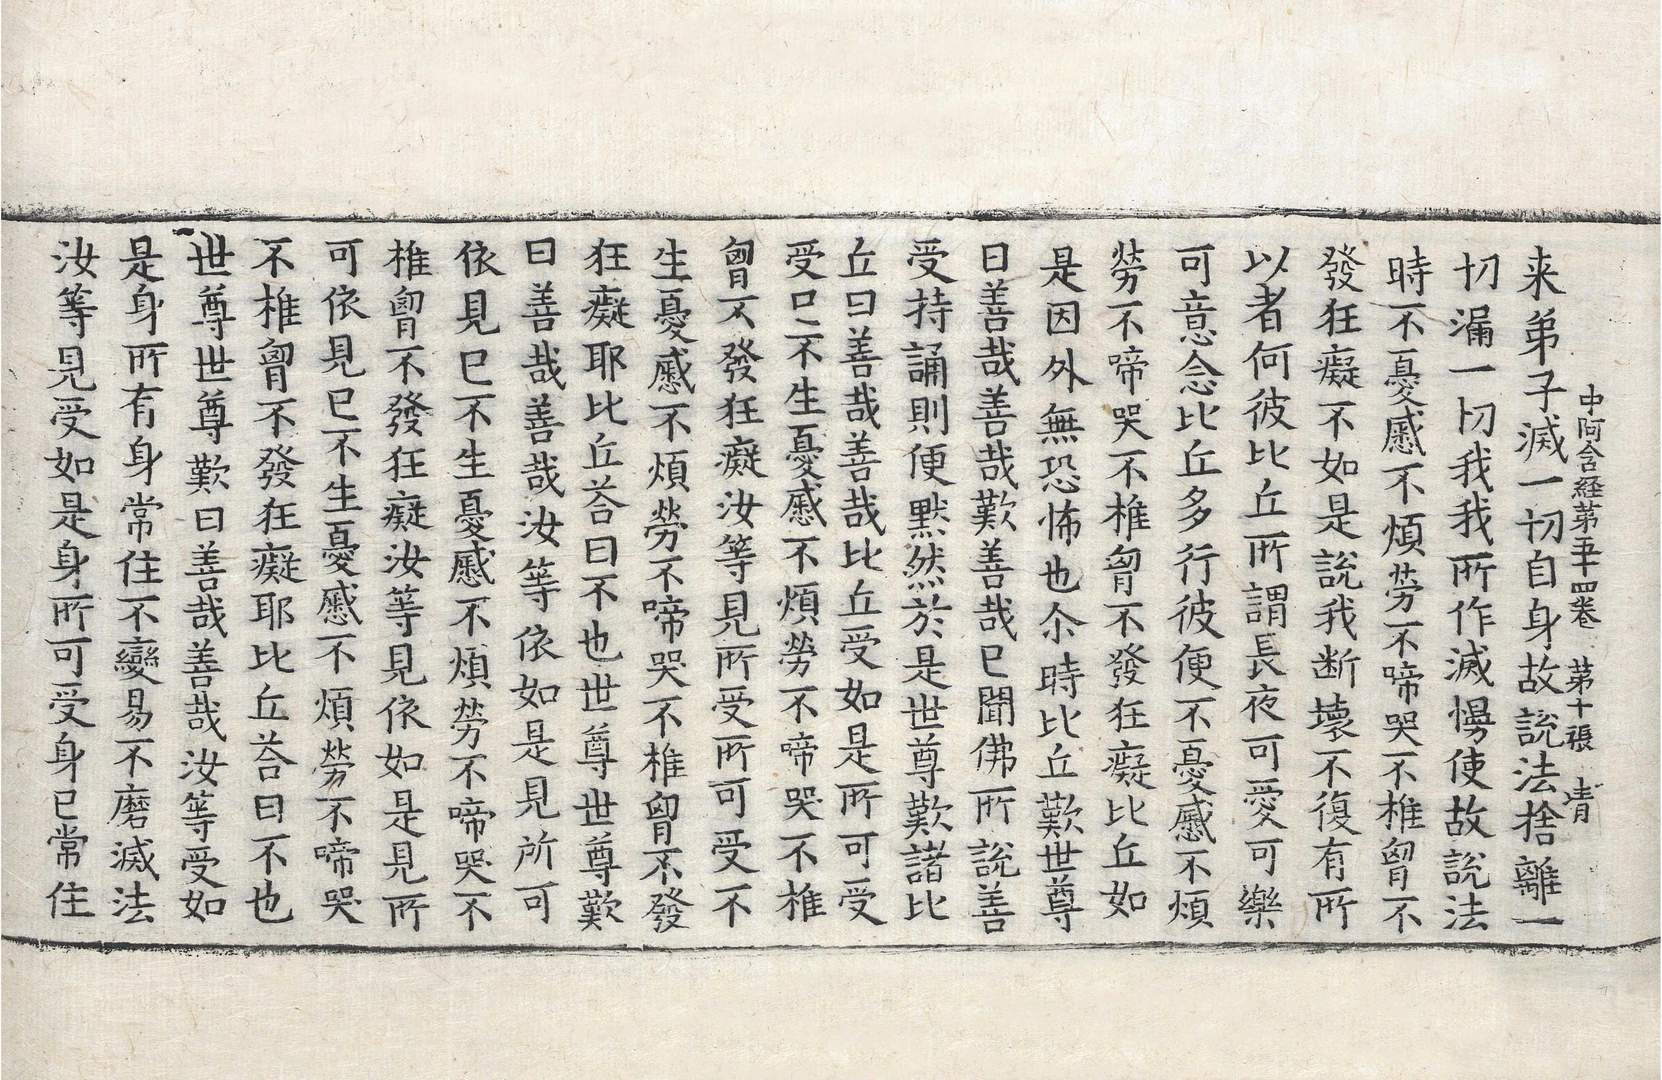 中阿含経第五十四卷 第十張 㓇
来弟子滅一切自身故說法捨離一
切漏一切我我所作滅慢使故說法
時不憂慼不煩勞不啼哭不椎胷不
發狂癡不如是說我断壞不復有所
以者何彼比丘所謂長夜可愛可樂
可意念比丘多行彼便不憂慼不煩
勞不啼哭不椎胷不發狂癡比丘如
是因外無恐怖也尒時比丘歎世尊
曰善哉善哉歎善哉已聞佛所說善
受持誦則便黙然於是世尊歎諸比
丘曰善哉善哉比丘受如是所可受
受已不生憂慼不煩勞不啼哭不椎
胷不發狂癡汝等見所受所可受不
生憂慼不煩勞不啼哭不椎胷不發
狂癡耶比丘荅曰不也世尊世尊歎
曰善哉善哉汝等依如是見所可
依見已不生憂慼不煩勞不啼哭不
椎胷不發狂癡汝等見依如是見所
可依見已不生憂慼不煩勞不啼哭
不椎胷不發狂癡耶比丘荅曰不也
世尊世尊歎曰善哉善哉汝等受如
是身所有身常住不變易不磨滅法
汝等見受如是身所可受身已常住